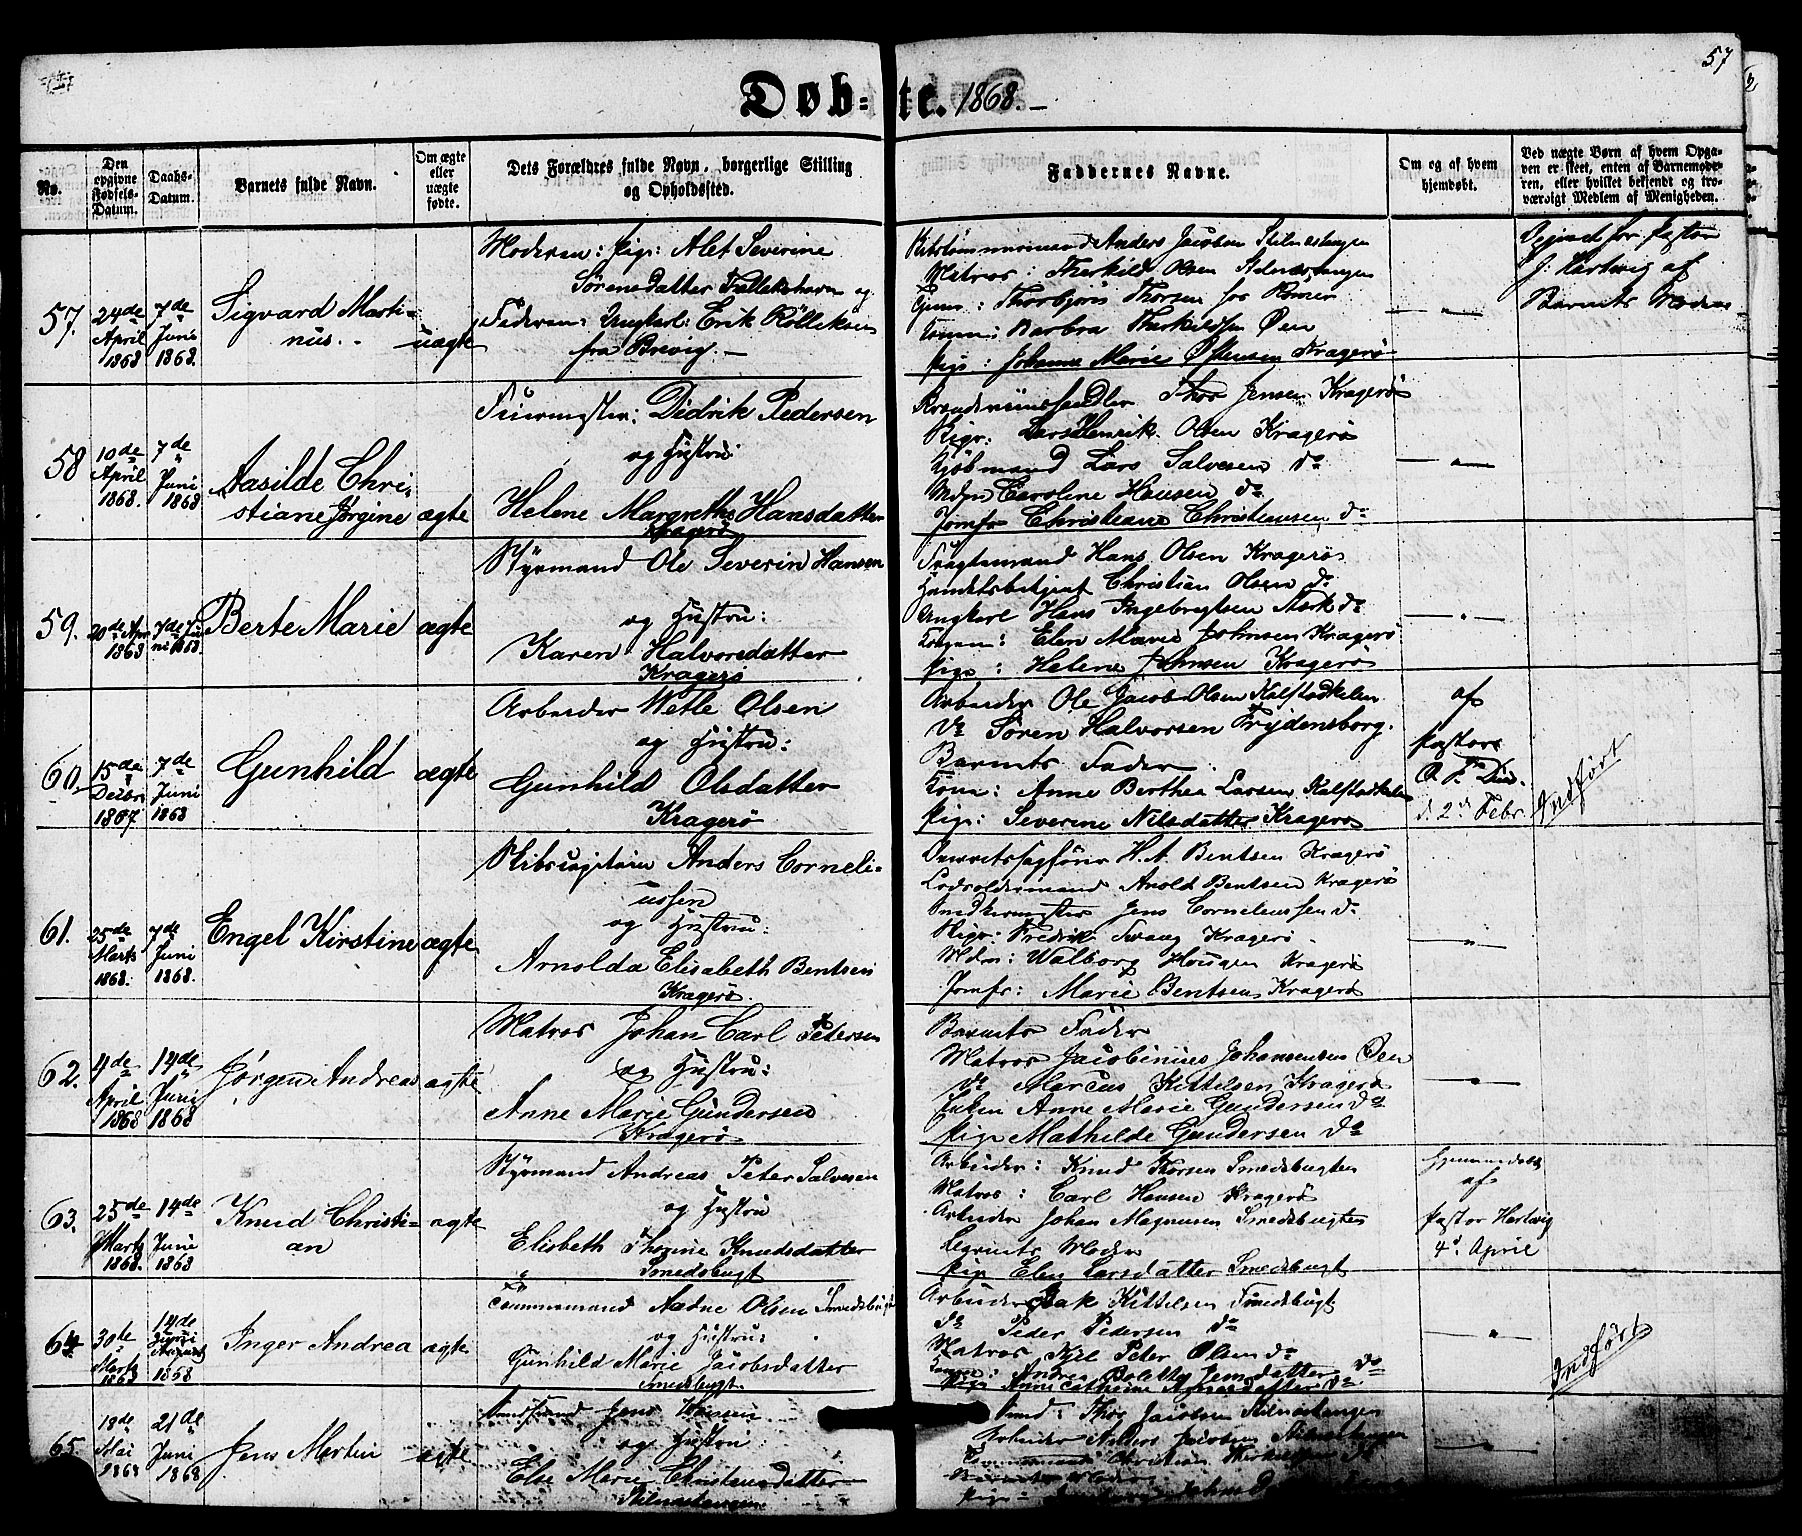 57
Døb-te. 1868.
No.
Den opgivne Fødsels-Datum.
Daabs-Datum.
Barnets fulde Navn.
Om ægte eller uægte fødte.
Dets Forældres fulde Navn, borgerlige Stilling og Opholdssted.
Faddernes Navne.
Om og af hvem hjemdøbt.
Ved uægte Børn af hvem Opga-
ven er skeet, enten af Barnemode-
ren, eller hvilket bekjendt og tro-
værdigt Medlem af Menigheden.
57.
24de April 1868
7de Juni 1868.
Sigvard Marti-
nus.
uægte
Moderen: Pige: Alet Severine
Sørensdatter
og
Faderen: Ungkarl: Erik
fra Brevig.
Anders Jacobsen
Matros: Therkild Olsen
Thorbjørn Thorsen
Kone: Barbra Therkildsen Øen
Pige: Johanne Marie Kragerø
for Pastor
J: Hartvig af
Barnets Moder
58
10de April 1868.
7de Juni 1868
Aasilde Chri-
stiane Jørgine
ægte
Didrik Pedersen
og Hustru
Helene Margrethe Hansdatter
Kragerø
Thor Jensen Kragerø
Lars Henrik Olsen Kragerø
Kjøbmand Lars Salvesen do
Mdm Caroline Hansen do
Jomfr Christiane Christiansen do
59.
20de Apr 1868
7de Juni 1868
Berte Marie
ægte
Styrmand Ole Severin Hansen
og Hustru:
Karen Halvorsdatter
Kragerø
Fragtemand Hans Olsen Kragerø
Handelsbetjent Christian Olsen do
Ungkarl Hans Ingebregtsen Stork do
Konen: Elen Marie Johnsen Kragerø
Pige: Helene Johnsen Kragerø
60.
15de Decbr 1867
7de Juni 1868
Gunhild
ægte
Arbeider Vetle Olsen
og Hustru:
Gunhild Olsdatter
Kragerø
Arbeider Ole Jacob Olsen Kalstadkilen
do Søren Halvorsen Frydensborg.
Barnets Fader
Kone: Anne Berthea Larsen Kalstadkilen
Pige: Severine Nilsdatter Kragerø
af
Pastor
d. 2den Febr.
Indført
61.
25de Marts 1868.
7de Juni 1868.
Engel Kirstine
ægte
Skibscapitain Anders Corneli-
ussen
og Hustru:
Arnolda Elisabeth Bentsen
Kragerø.
H. A. Bentsen Kragerø
Arnold Bentsen Kragerø
Snedkermester Jens Corneliussen do
Fredrik Kragerø
Mdm: Walborg Hougen Kragerø
Jomfr: Marie Bentsen Kragerø
62.
4de April 1868
14de Juni 1868
Jørgen Andreas
ægte
Matros Johan Carl Petersen
og Hustru:
Anne Marie Gundersen
Kragerø
Barnets Fader
Matros Jacobinius Johannsen Øen
do Marcus Kittelsen Kragerø
Anne Marie Gundersen do
Pige Mathilde Gundersen do
63.
25de Marts 1868.
14de Juni 1868
Knud Christi-
an
ægte
Styrmand Andreas Peter Salvesen
og Hustru
Elisbeth Thorine Knudsdatter
Smedsbugt
Arbeider: Knud Thorsen Smedsbugten
Matros: Carl Hansen Kragerø
Arbeider Johan Magnussen Smedsbugten
Barnets Moder
Pige Elen Larsdatter Smedsbugt
Hjemmedøbt
af
Pastor Hartvig
4d. April
64
30te Marts 1868
14de Juni 1868
Inger Andrea
ægte
Tømmermand Aadne Olsen Smedsbugt
og Hustru:
Gunhild Marie Jacobsdatter
Smedsbugt.
Arbeider Isak Kittelsen Smedsbugt
do Peder Pedersen do
Matros Kjel Peter Olsen do
Konen: Andrea Bolette Jensdatter do
Pige Anne Cathrine do
Indført
65.
18de Mai 1868
21de Juni 1868
Jens Martin
ægte
Jens Hansen
og Hustru
Else Marie Christensdatter
Thor Jacobsen
Arbeider Jacobsen
Christian
Barnets Moder
Pige: